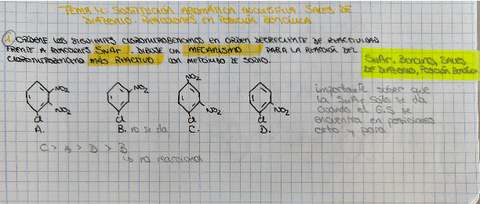 TEMA 4: SUSTITUCIÓN AROMÁTICA NUCLEÓFILA SALES DE
DIAZONIO. REACCIONES EN POSICIÓN BENCÍLICA
1. ORDENE LOS SIGUIENTES CLORONITROBENCENOS EN ORDEN DECRECIENTE DE REACTIVIDAD
FRENTE A REACCIONES SNAr. DIBUJE UN MECANISMO PARA LA REACCIÓN DEL
CLORONITROBENCENO MÁS REACTIVO CON METÓXIDO DE SODIO.
SNAr, BENCINO, SALES
DE DIAZONIO, POSICIÓN BENCÍLICA
NO2
NO2
NO2
NO2
NO2
Cl
Cl
Cl
Cl
A.
B. no se da
C.
D.
importante saber que
la SNAr solo se da
cuando el G.S se
encuentra en posiciones
orto y para
C > A > D > B
↳ no reacciona